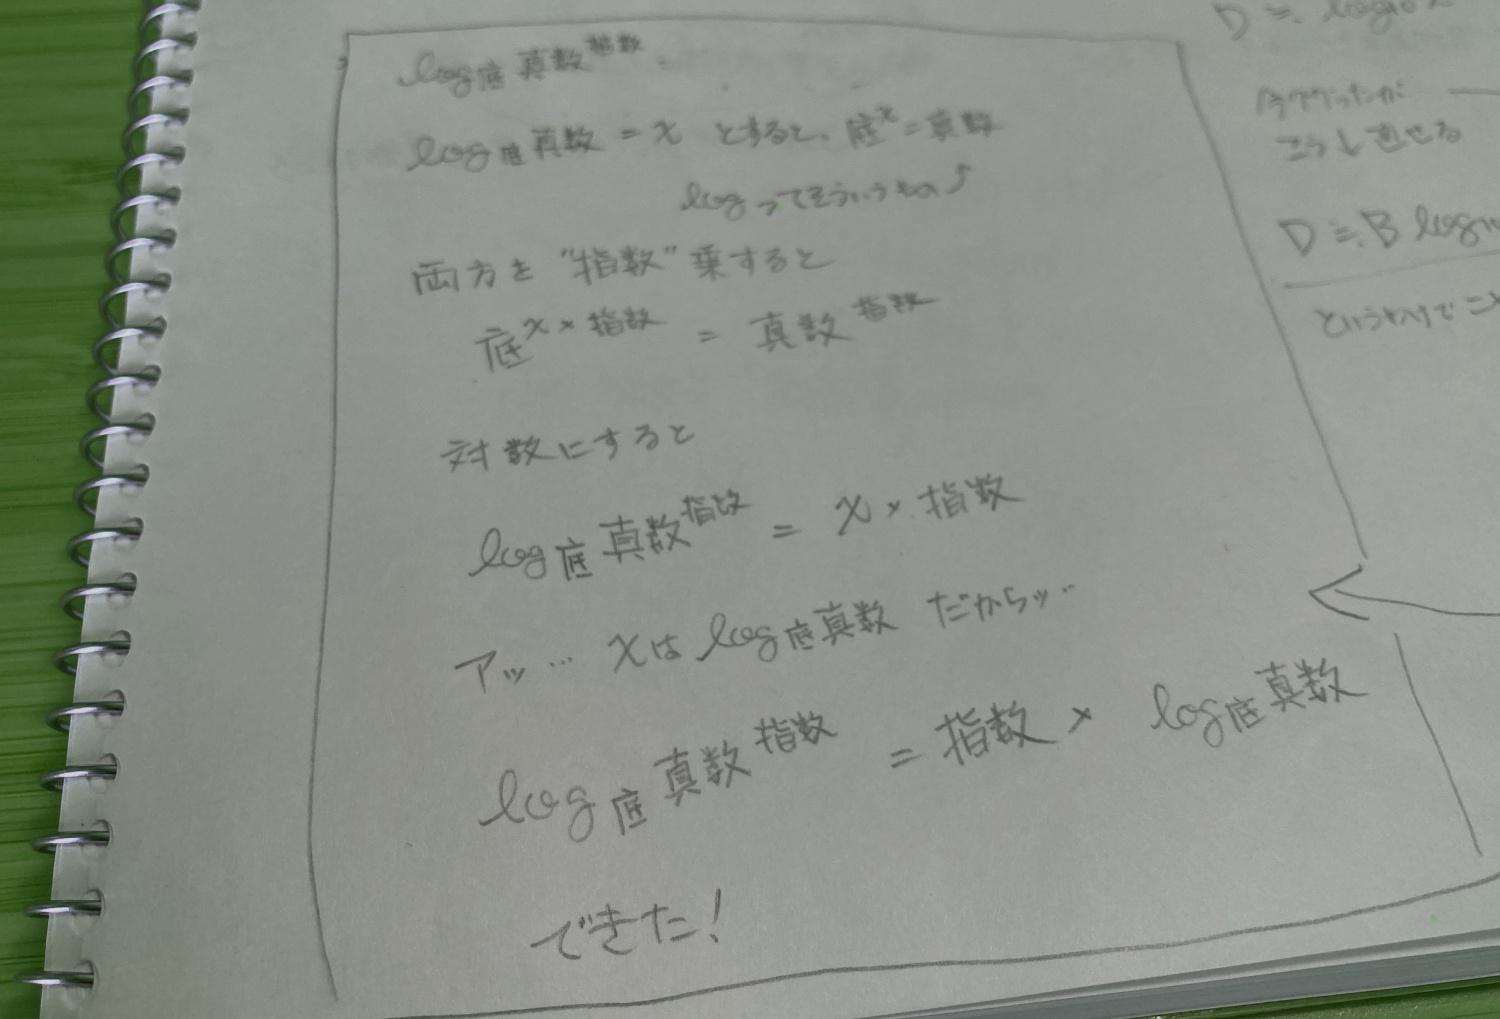 log底真数指数
log底真数 = x とすると、底x = 真数
logってそういうもの
両方を"指数"乗すると
底x × 指数 = 真数指数
対数にすると
log底真数指数 = x × 指数
アッ… xは log底真数 だからッ…
log底真数指数 = 指数 × log底真数
できた!
D ≒ log10
今ググったが
こう直せる
D ≒ B log10
というわけでこ